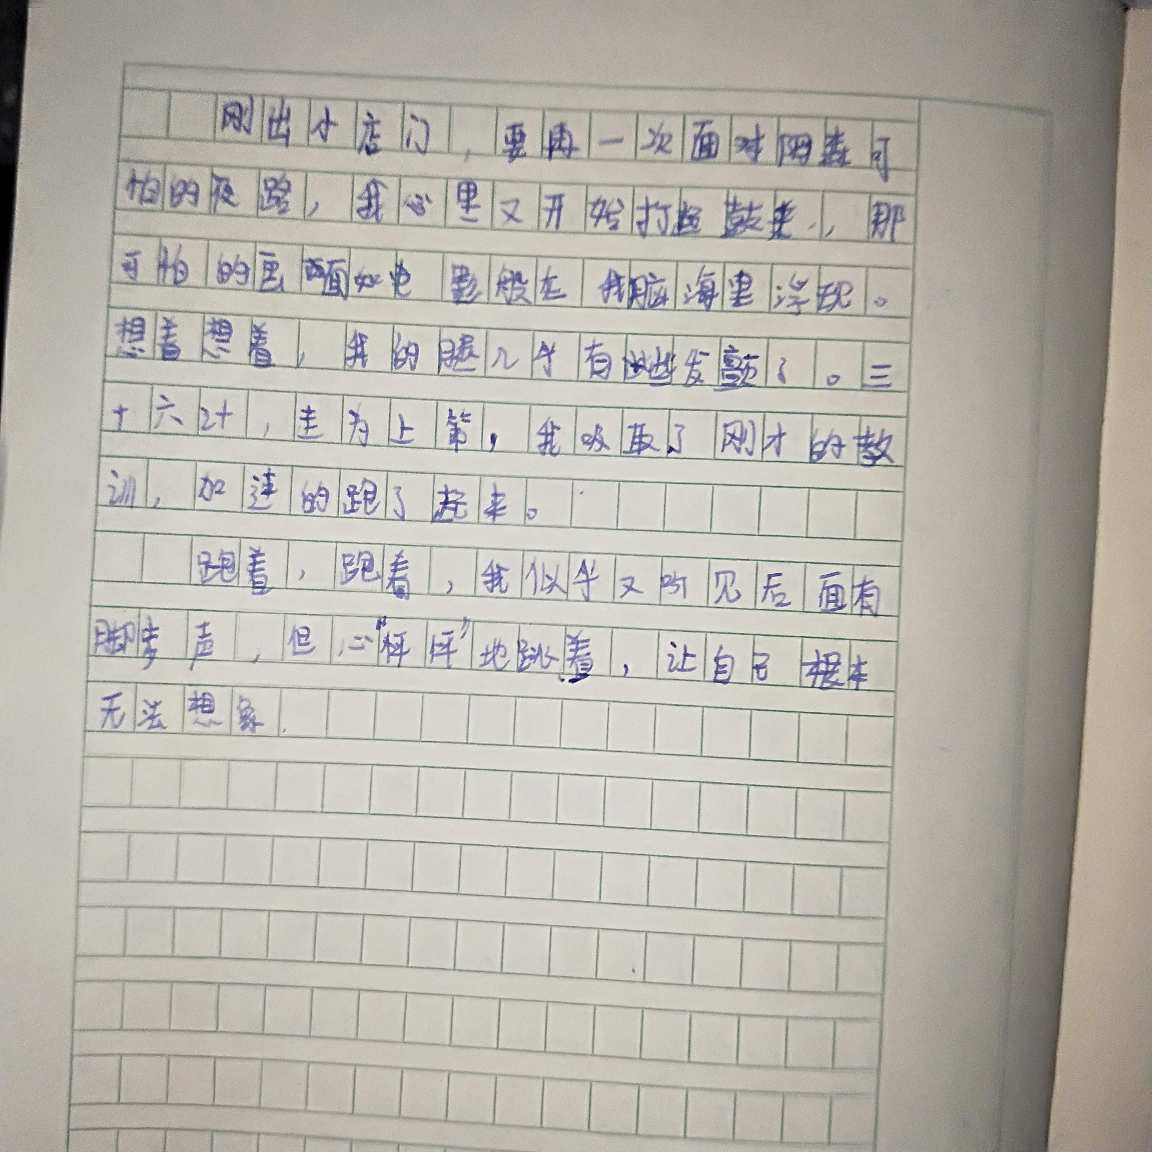 刚出小店门，要再一次面对阴森可
怕的夜路，我心里又开始打起鼓来，那
可怕的画面如电影般在我脑海里浮现。
想着想着，我的腿几乎有些发颤了。三
十六计，走为上策，我吸取了刚才的教
训，加速的跑了起来。
跑着，跑着，我似乎又听见后面有
脚步声，但心“怦怦”地跳着，让自己根本
无法想象.